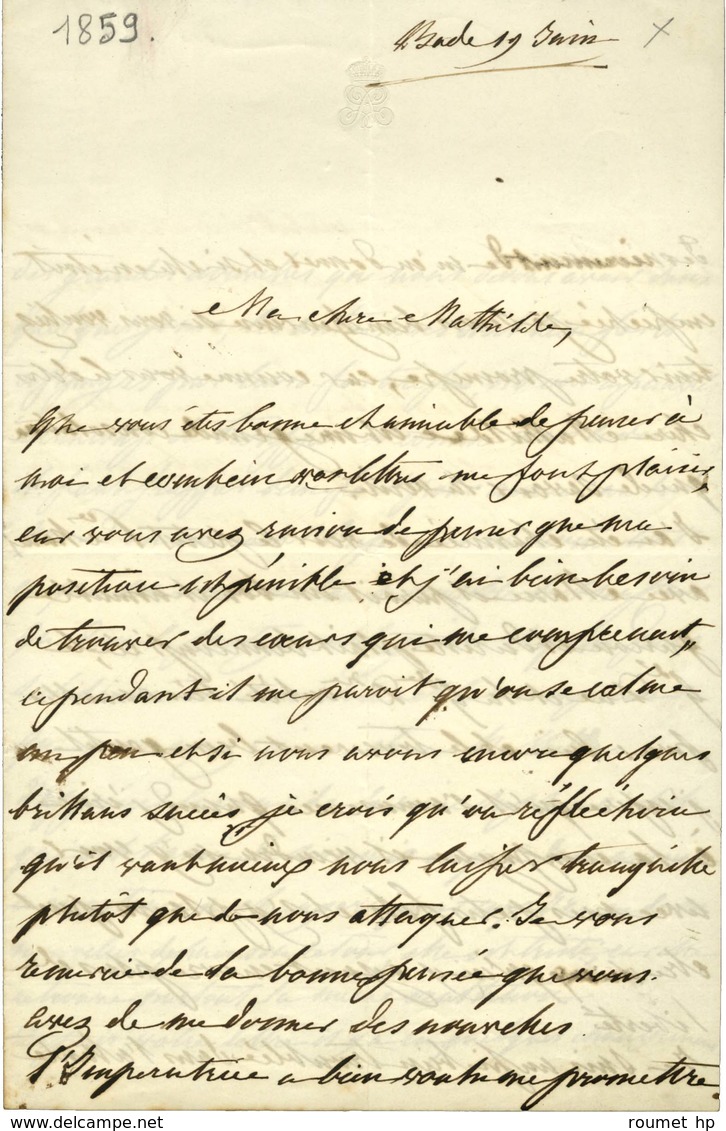 1859.
Bade 19 Juin
Ma chère Mathilde,
Que vous êtes bonne et aimable de penser à
moi et combien vos lettres me font plaisir,
car vous avez raison de penser que ma
position est pénible et j'ai bien besoin
de trouver des cœurs qui me comprenent,
cependant il me paroit qu'on se calme
un peu et si nous avons encore quelques
brillans succès, je crois qu'on réfléchira
qu'il vaut mieux nous laisser tranquille
plutôt que de nous attaquer. Je vous
remercie de la bonne pensée que vous
avez de me donner des nouvelles
l'Imperatrice a bien voulu me promettre
roumet hp